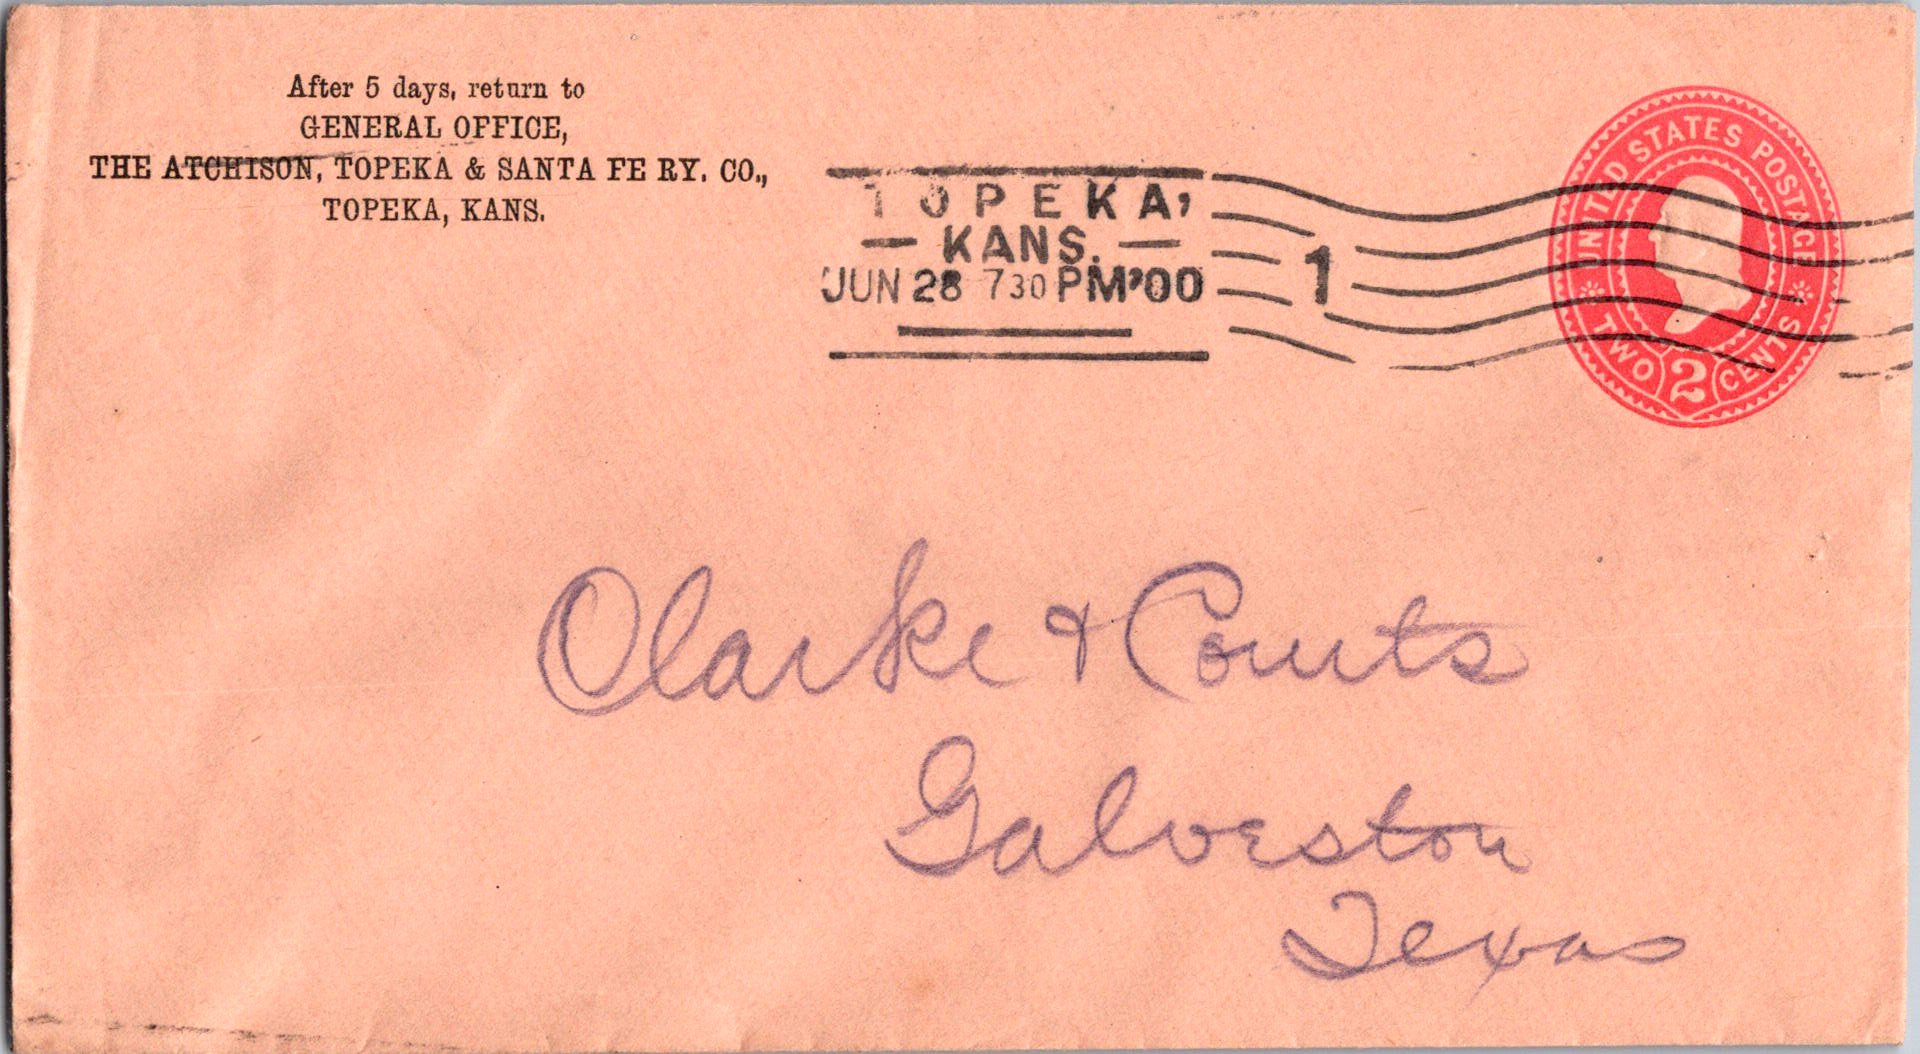 After 5 days, return to
GENERAL OFFICE,
THE ATCHISON, TOPEKA & SANTA FE RY. CO.,
TOPEKA, KANS.
TOPEKA,
— KANS. —
JUN 28 730 PM '00
1
UNITED STATES POSTAGE
TWO 2 CENTS
Clarke & Courts
Galveston
Texas